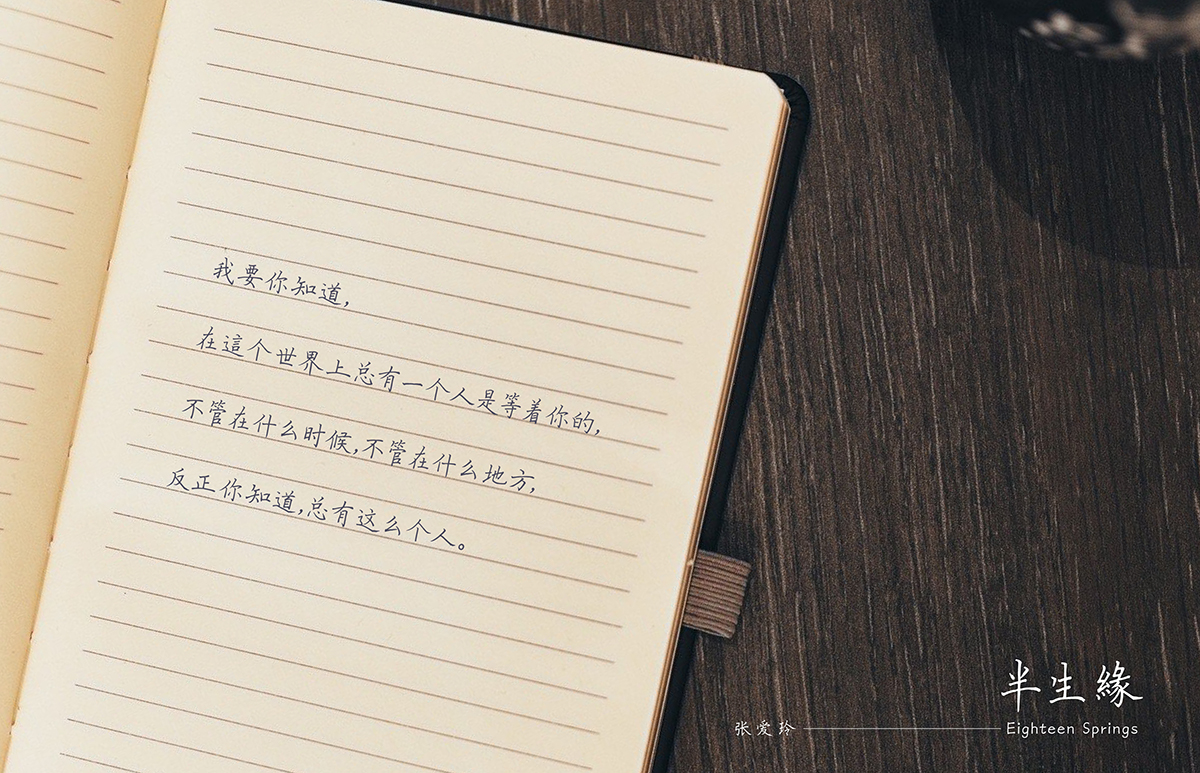 我要你知道，
在這个世界上总有一个人是等着你的，
不管在什么时候，不管在什么地方，
反正你知道，总有这么个人。
半生緣
张爱玲
Eighteen Springs